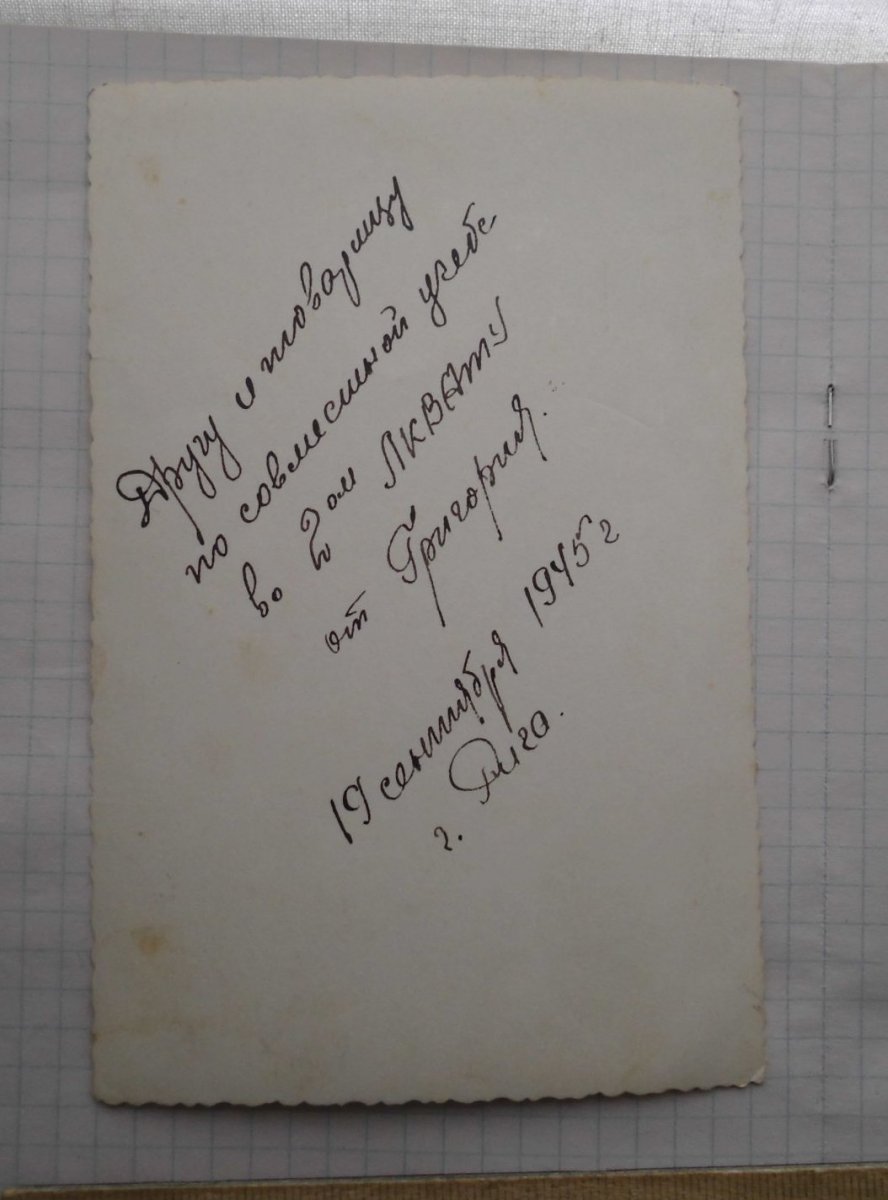 Другу и товарищу
по совместной учебе
во 2ом ЛКВАТУ
от Григория.
19 сентября 1945 г
г. Рига.